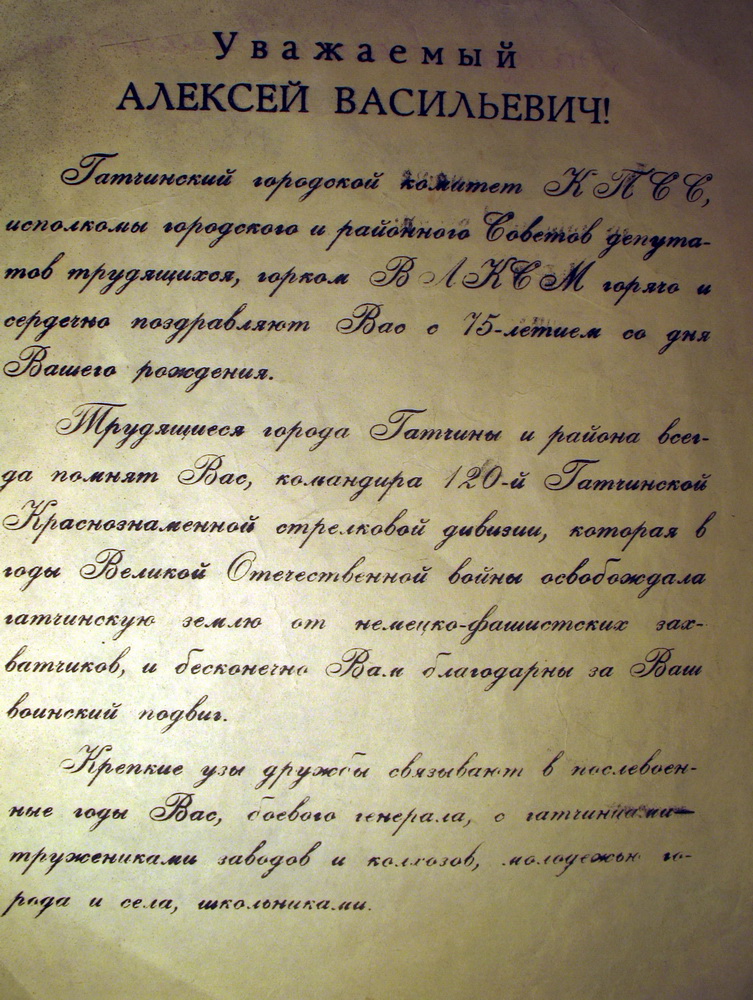 Уважаемый
АЛЕКСЕЙ ВАСИЛЬЕВИЧ!
Гатчинский городской комитет КПСС,
исполкомы городского и районного Советов депута-
тов трудящихся, горком ВЛКСМ горячо и
сердечно поздравляют Вас с 75-летием со дня
Вашего рождения.
Трудящиеся города Гатчины и района всег-
да помнят Вас, командира 120-й Гатчинской
Краснознаменной стрелковой дивизии, которая в
годы Великой Отечественной войны освобождала
гатчинскую землю от немецко-фашистских зах-
ватчиков, и бесконечно Вам благодарны за Ваш
воинский подвиг.
Крепкие узы дружбы связывают в послевоен-
ные годы Вас, боевого генерала, с гатчинцами—
тружениками заводов и колхозов, молодежью го-
рода и села, школьниками.